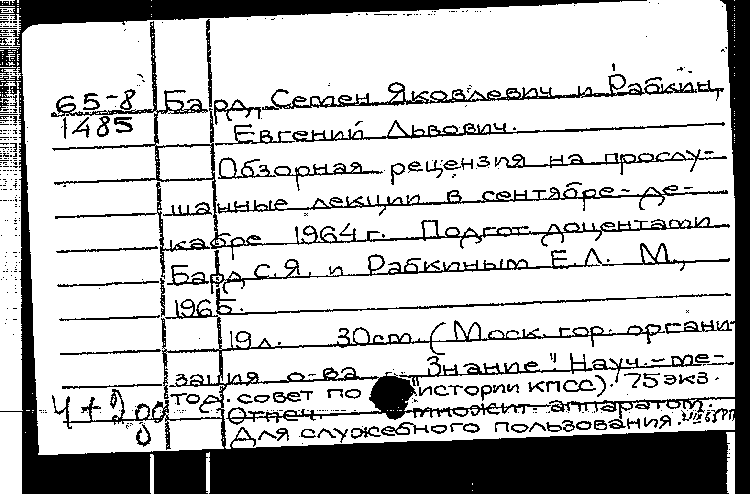 65-8 Бард, Семен Яковлевич и Рабкин,
1485 Евгений Львович.
Обзорная рецензия на прослу-
шанные лекции в сентябре-де-
кабре 1964 г. Подгот. доцентами
Бард С.Я. и Рабкиным Е.Л. М.,
1965.
19 л. 30 см. (Моск. гор. органи-
зация о-ва "Знание". Науч.-ме-
тод. совет по истории КПСС). 75 экз.
Отпеч. множит. аппаратом.
Для служебного пользования.